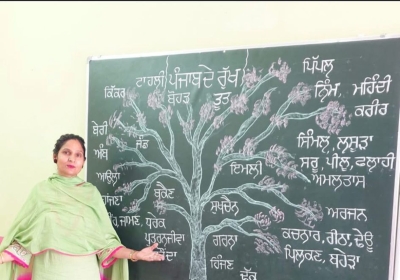 ਟਾਹਲੀ ਪੰਜਾਬ ਦੇ ਰੁੱਖ ਪਿੱਪਲ
ਕਿੱਕਰ ਬੋਹੜ ਤੂਤ ਨਿੰਮ, ਮਹਿੰਦੀ
ਕਰੀਰ
ਬੇਰੀ ਜੰਡ ਸਿੰਮਲ, ਲਸੂੜਾ
ਅੰਬ ਇਮਲੀ ਸਰੂ, ਪੀਲੂ,
ਆਉਲਾ ਅਮਲਤਾਸ
ਬਕੈਣ ਸੁਖਚੈਨ ਅਰਜਨ
ਜਾਮਣ, ਧਰੇਕ ਕਚਨਾਰ, ਰੀਠਾ,
ਪੁਤਰਨਜੀਵਾ ਗਰਨਾ ਢੱਕ ਪਿਲਕਣ, ਬਹੇੜਾ
ਹਿੰਜਣ